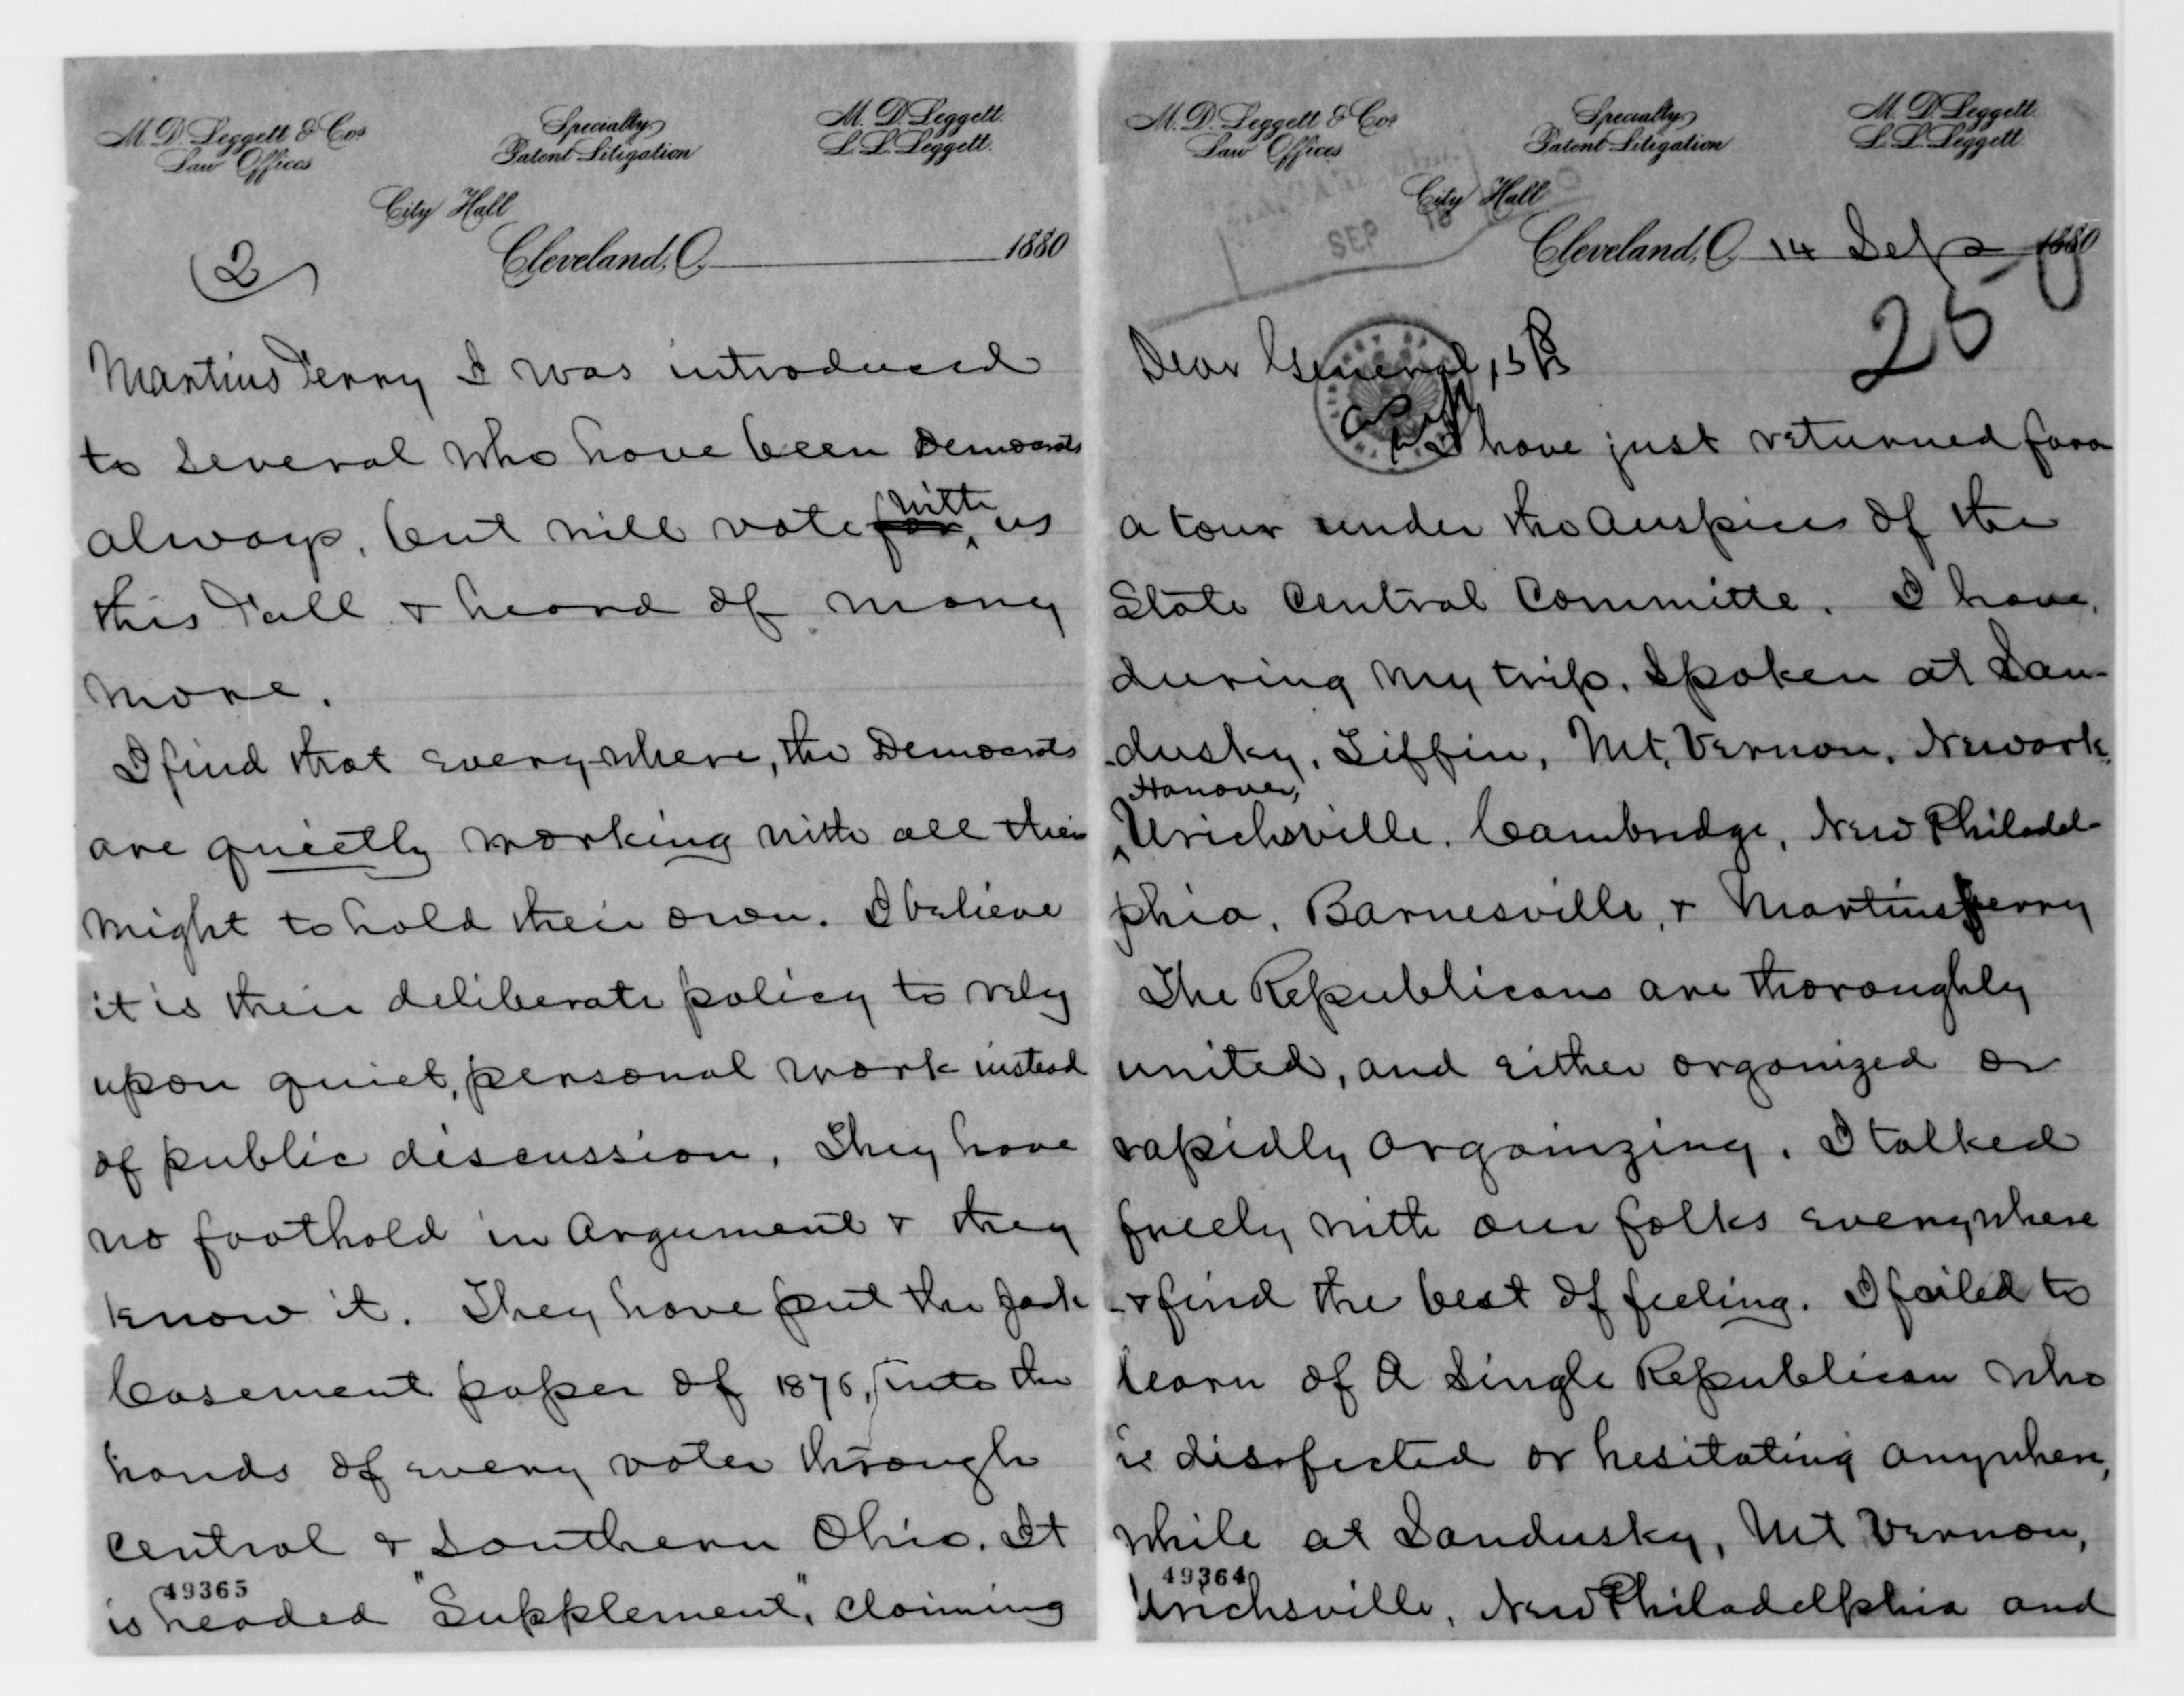 M. D. Leggett & Cos
Law Offices
Specialty
Patent Litigation
M. D. Leggett.
L. L. Leggett.
City Hall
Cleveland, O. 14 Sep 1880
SEP 18
25
Dear General,
I have just returned from
a tour under the Auspices of the
State Central Committe. I have,
during my trip, Spoken at San-
dusky, Tiffin, Mt. Vernon, Newark,
Hanover,
Urichsville, Cambridge, New Philadel-
phia, Barnesville, & Martinsferry
The Republicans are thoroughly
united, and either organized or
rapidly organizing. I talked
freely with our folks everywhere
& find the best of feeling. I failed to
learn of a Single Republican who
is disafected or hesitating anywhere,
While at Sandusky, Mt Vernon,
49364
Urichsville, New Philadelphia and
M. D. Leggett & Cos
Law Offices
Specialty
Patent Litigation
M. D. Leggett.
L. L. Leggett.
City Hall
Cleveland, O. 1880
(2)
Martins Ferry I was introduced
to Several who have been Democrats
with
always, but will vote for us
this Fall & heard of many
more.
I find that everywhere, the Democrats
are quietly working with all their
might to hold their own. I believe
it is their deliberate policy to rely
upon quiet, personal work instead
of public discussion. They have
no foothold in Argument & they
know it. They have put the Jack
Casement paper of 1876, into the
hands of every voter through
Central & Southern Ohio. It
49365
is headed "Supplement", claiming